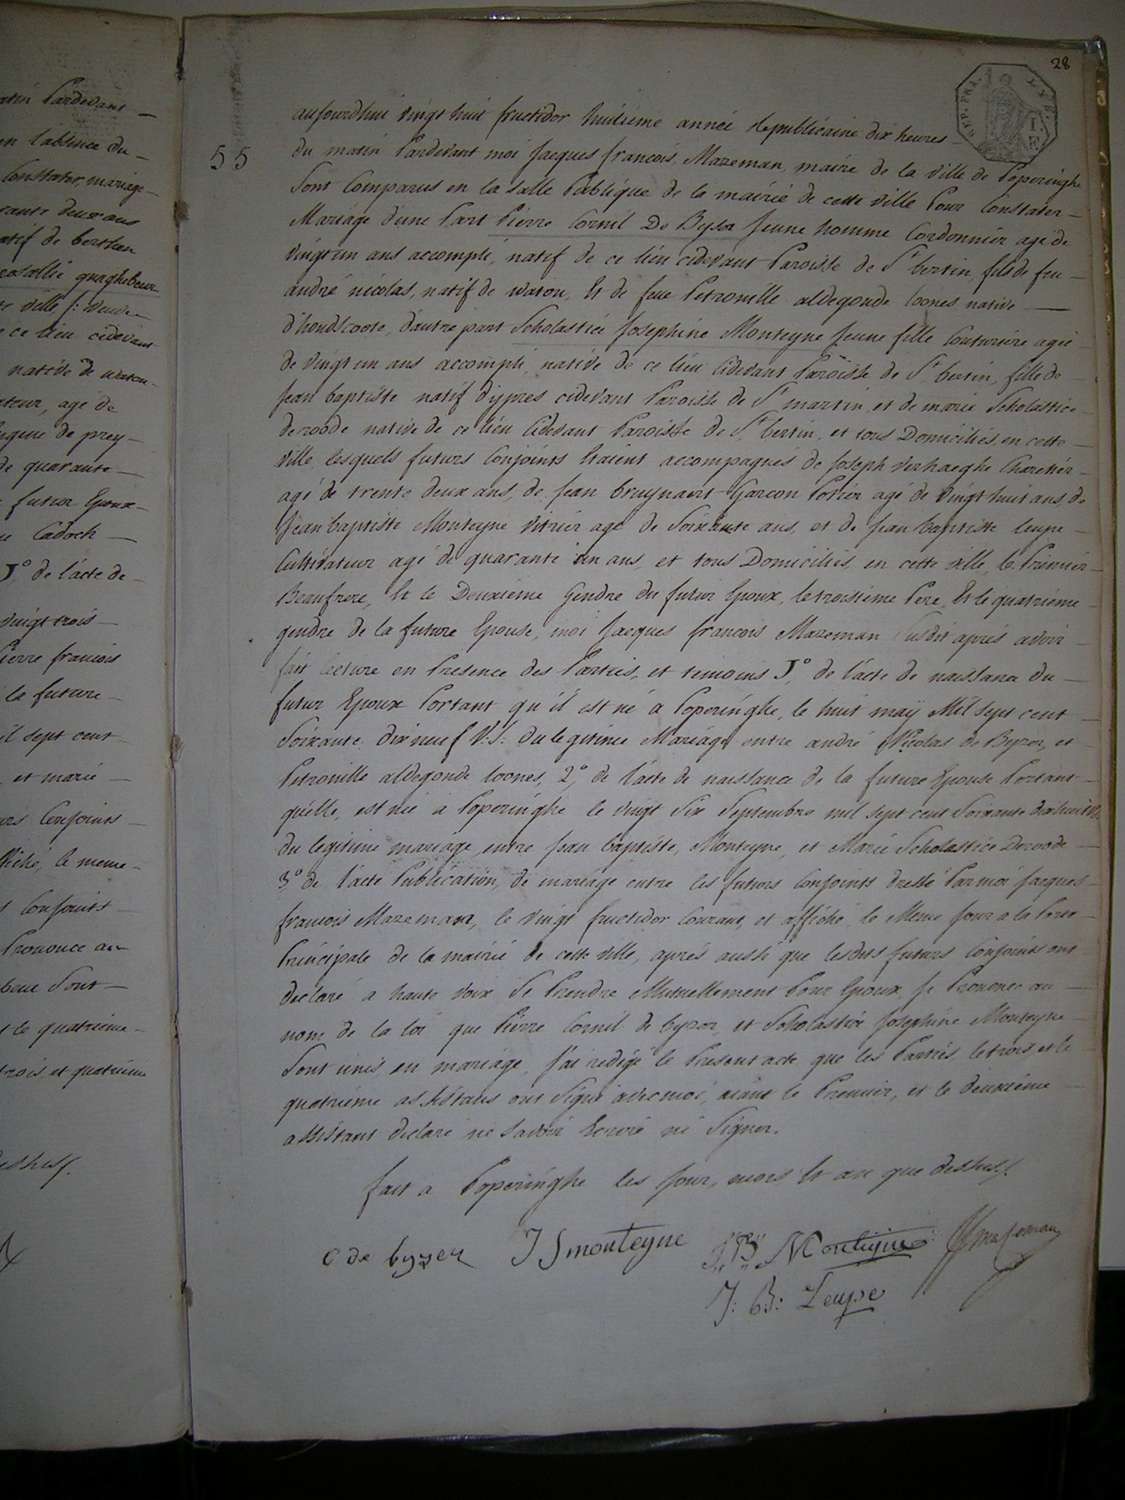 atin Pardevant —
en l'absence du —
Constater mariage —
rante deux ans
atif de berthen
rosallie quaghebeur
te ville f: veuve —
e ce lieu cidevant
native de watou —
ateur, age de
de quarante —
futur Epoux —
Cadock —
J.° de l'acte de —
vingt trois —
Pierre francois
la future —
il sept cent —
et marie —
urs Conjoints —
ffiché, le meme —
Conjoints —
Prononce au
beur Sont —
t le quatrieme —
trois et quatrieme
28
55
aujourdhui vingt huit fructidor huitieme année Republicaine dix heures —
du matin Pardevant moi Jacques francois Mazeman, maire de la ville de Poperinghe
Sont Comparus en la Salle Publique de la mairie de cette ville Pour Constater —
Mariage d'une Part Pierre Cornil De Byser Jeune homme Cordonnier age de
vingt un ans accompli, natif de ce lieu cidevant Paroisse de St bertin, fils de feu —
andré nicolas, natif de watou, Et de feue Petronille aldegonde loones native —
d'hondscoote, d'autre part Scholastice Josephine Monteyne Jeune fille Couturiere agée
de vingt un ans accompli, native de ce lieu cidevant Paroisse de St bertin, fille de —
Jean baptiste natif d'ypres cidevant Paroisse de St martin, et de marie Scholastice —
deroode native de ce lieu Cidevant Paroisse de St bertin, et tous Domiciliés en cette —
ville, lesquels futurs Conjoints Etaient accompagnés de Joseph verhaeghe Charetier —
agé de trente deux ans, de Jean bruynaert Garcon Potier agé de vingt huit ans, de
Jean baptiste Monteyne vitrier age de Soixante ans, et de Jean baptiste leupe —
Cultivateur agé de quarante un ans, et tous Domiciliés en cette ville, le Premier —
Beaufrere, Et le Deuxieme Gendre du futur Epoux, le troisieme Pere, Et le quatrieme —
gendre de la future Epouse, moi Jacques francois Mazeman Susdit aprés avoir —
fait lecture en Presence des Parties, et temoins J.° de l'acte de naissance du —
futur Epoux Portant qu'il est né à Poperinghe, le huit maÿ Mil Sept cent —
Soixante dix neuf V.S: du legitime Mariage entre andré Nicolas de Byzer, et —
Petronille aldegonde loones, 2.° de l'acte de naissance de la future Epouse Portant —
qu'elle, est née à Poperinghe le vingt Six Septembre mil sept cent Soixante dix huit VS,
du legitime mariage entre Jean baptiste, Monteyne, et Marie Scholastice Deroode —
3.° de l'acte Publication, de mariage entre les futurs Conjoints dressé Par moi Jacques —
francois Mazeman, le vingt fructidor Courant, et affiché le Meme Jour a la Porte —
Principale de la mairie de cette ville, aprés aussi que lesdits futurs Conjoints ont —
declaré a haute voix Se Prendre Mutuellement Pour Epoux, Je Prononce au —
nom de la loi que Pierre Cornil de byzer, et Scholastice Josephine Monteyne —
Sont unis en mariage, J'ai redigé le Present acte que les Parties, le trois, et le
quatrieme assistans ont Signé avec moi, aiant le Premier, et le deuxieme —
assistant declaré ne Savoir Ecrire ni Signer.
fait a Poperinghe les Jour, mois Et an que dessus/.
C de byzer
J S monteyne
J B Monteyne
J: B: Leupe